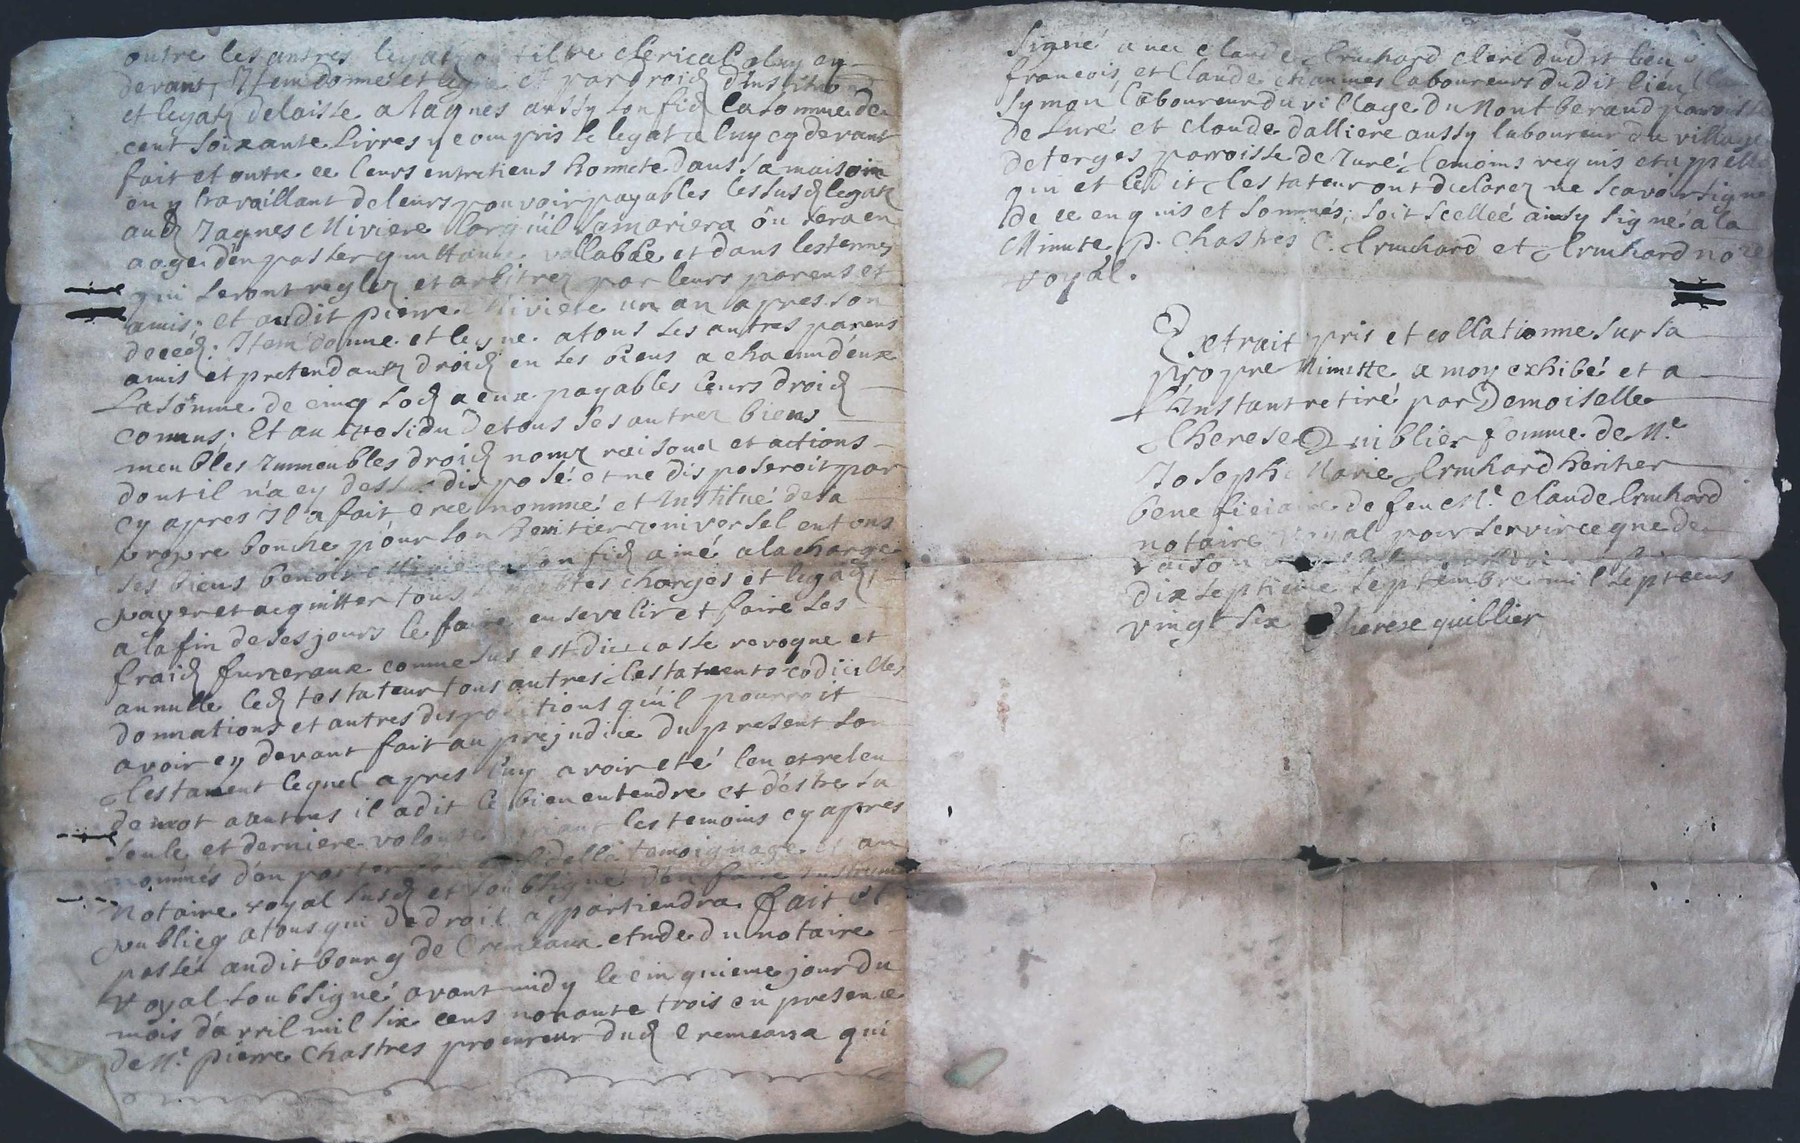 outre les autres legatz au tiltre clerical a luy cy
devant, Item donne et legue et par droict d'institu
et legatz delaisse a Jagnes aussy son filz la somme de
cent soixante livres y compris le legat a luy cy devant
fait et outre ce leurs entretiens honnete dans sa maison
en y travaillant de leurs pouvoir payables lesusd legatz
aud Jagnes Miviere lorsqu'il se mariera ou sera en
aage d'en passer quittance vallable et dans les termes
qui seront reglez et arbitrez par leurs parens et
amis, et audit pierre Miviere un an apres son
deced. Item donne et legue a tous ses autres parens
amis et pretendantz droict en ses biens a chacun d'eux
la somme de cinq solz a eux payables leurs droictz
connus; Et au residu de tous ses autres biens
meubles immeubles droictz noms raisons et actions
dont il n'a cy dessus disposé et ne disposeroit par
cy apres Il a fait créé nommé et Institué de sa
propre bouche pour son heritier universel en tous
ses biens benoit Miviere son filz ainé a la charge
payer et acquitter tous charges et legatz
a la fin de ses jours le faire ensevelir et faire ses
fraiz funeraux comme sus est dit casse revoque et
annulle led testateur tous autres testaments codicilles
donnations et autres dispositions qu'il pourroit
avoir cy devant fait au prejudice du present son
testament lequel apres luy avoir eté leu et releu
de mot a autres il a dit le bien entendre et d'estre sa
seule et derniere volonté priant les temoins cy apres
nommés d'en porter temoignage et au
Notaire royal susd et soubsigné d'en faire
publiez a tous qui de droit appartiendra fait et
passé audit bourg de Cremeaux etude du notaire
royal soubsigné avant midy le cinquieme jour du
mois d'avril mil six cens nonante trois en presence
de Mr. pierre Chastres procureur dud Cremeaux qui
signé avec Claude Trunchard clerc dudit lieu
francois et Claude chaumes laboureurs dudit lieu
symon laboureur du village du Mont berand paroisse
de Juré et claude dalliere aussy laboureur du village
de forges parroisse de Juré, temoins requis et appellé
qui et ledit testateur ont declarez ne scavoir signer
de ce enquis et sommés; soit scelleé ainsy signé a la
Minute P. Chastres C. Trunchard et Trunchard nore
royal.
Extrait pris et collationne sur sa
propre Minutte a moy exhibé et a
l'Instant retiré par Demoiselle
Therese Quiblier femme de Mr.
Joseph Marie Trunchard heritier
beneficiaire de feu Mr. Claude Trunchard
notaire royal pour servir ce que de
raison
dix septieme septembre mil sept cens
vingt six Therese quiblier